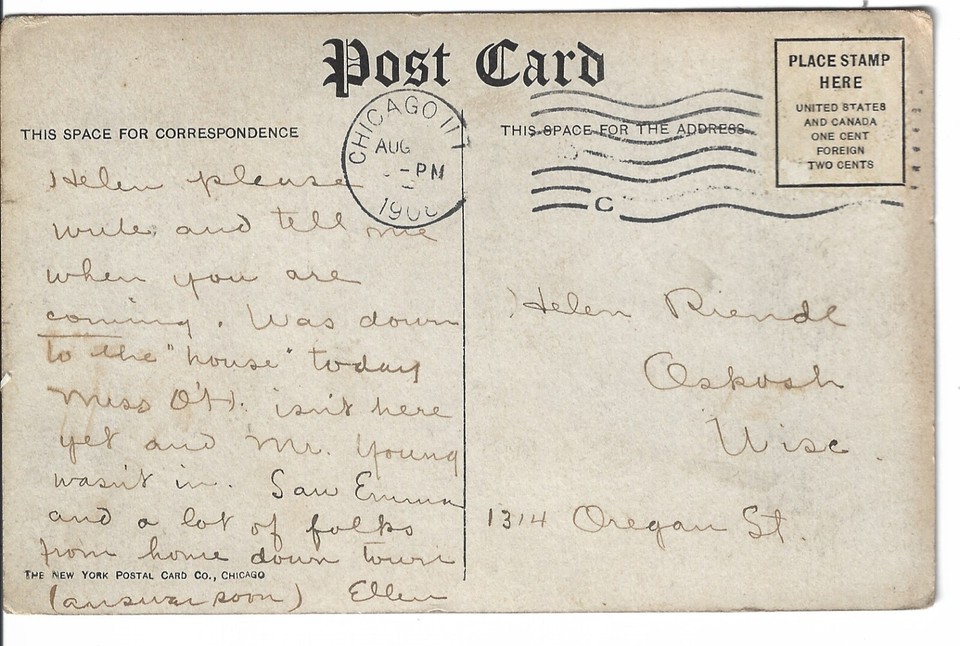 Post Card
PLACE STAMP
HERE
UNITED STATES
AND CANADA
ONE CENT
FOREIGN
TWO CENTS
CHICAGO
AUG
-PM
C
THIS SPACE FOR CORRESPONDENCE
Helen please
write, and tell me
when you are
coming. Was down
to the "house" today
Miss O'H. isn't here
yet and Mr. Young
wasn't in. Saw Emma
and a lot of folks
from home down town
THE NEW YORK POSTAL CARD CO., CHICAGO
(answar soon) Ellen
THIS SPACE FOR THE ADDRESS
Helen
Oskosh
Wisc.
1314 Oregan St.